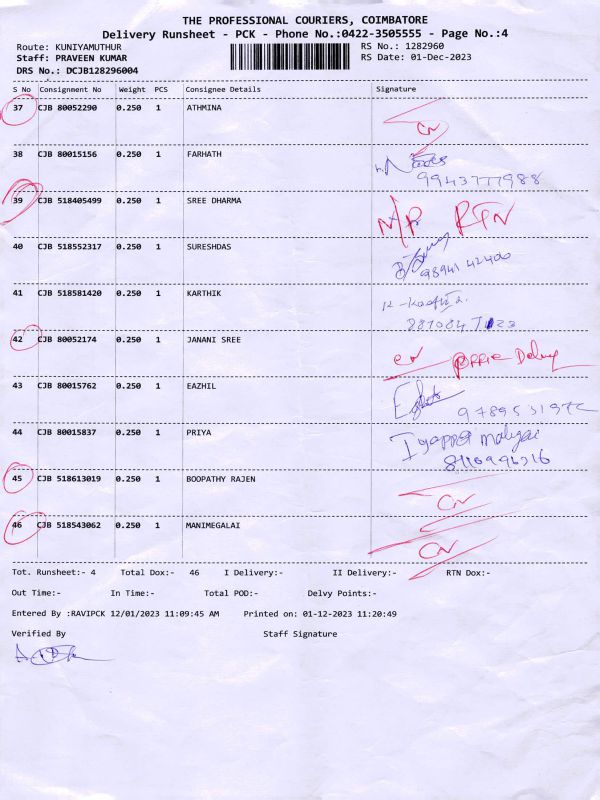 THE PROFESSIONAL COURIERS, COIMBATORE
Delivery Runsheet - PCK - Phone No.:0422-3505555 - Page No.:4
Route: KUNIYAMUTHUR RS No.: 1282960
Staff: PRAVEEN KUMAR RS Date: 01-Dec-2023
DRS No.: DCJB128296004
S No Consignment No Weight PCS Consignee Details Signature
37 CJB 80052290 0.250 1 ATHMINA
CN
38 CJB 80015156 0.250 1 FARHATH
9943777988
39 CJB 518405499 0.250 1 SREE DHARMA
N/R RTN
40 CJB 518552317 0.250 1 SURESHDAS
9894142400
41 CJB 518581420 0.250 1 KARTHIK
42 CJB 80052174 0.250 1 JANANI SREE
CN Delvy
43 CJB 80015762 0.250 1 EAZHIL
44 CJB 80015837 0.250 1 PRIYA
45 CJB 518613019 0.250 1 BOOPATHY RAJEN
CN
46 CJB 518543062 0.250 1 MANIMEGALAI
CN
Tot. Runsheet:- 4 Total Dox:- 46 I Delivery:- II Delivery:- RTN Dox:-
Out Time:- In Time:- Total POD:- Delvy Points:-
Entered By :RAVIPCK 12/01/2023 11:09:45 AM Printed on: 01-12-2023 11:20:49
Verified By Staff Signature